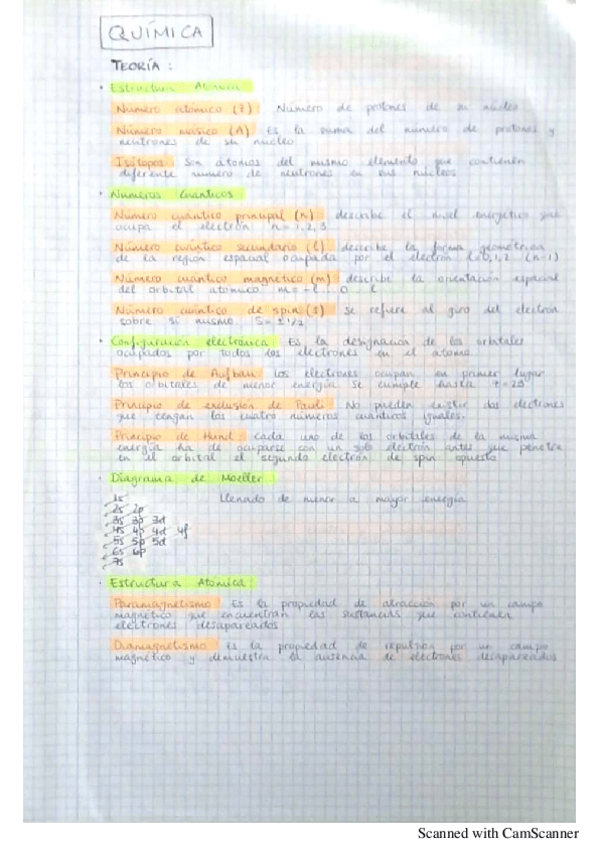 QUÍMICA
TEORÍA :
· Estructura Atómica
Número atómico (Z) Número de protones de su núcleo
Número másico (A) Es la suma del número de protones y
neutrones de su núcleo
Isótopos Son átomos del mismo elemento que contienen
diferente numero de neutrones en sus núcleos
· Números Cuánticos
Número cuántico principal (n) describe el nivel energético que
ocupa el electrón n=1,2,3
Número cuántico secundario (l) describe la forma geométrica
de la región espacial ocupada por el electrón l=0,1,2 (n-1)
Número cuántico magnético (m) describe la orientación espacial
del orbital atómico m=-l...0 l
Número cuántico de spin (s) se refiere al giro del electrón
sobre sí mismo. S= ±1/2
· Configuración electrónica Es la designación de los orbitales
ocupados por todos los electrones en el átomo
Principio de Aufbau los electrones ocupan en primer lugar
los orbitales de menor energía se cumple hasta
Principio de exclusión de Pauli No pueden existir dos electrones
que tengan los cuatro números cuánticos iguales.
Principio de Hund cada uno de los orbitales de la misma
energía ha de ocuparse con un solo electrón antes que penetre
en el orbital el segundo electrón de spin opuesto
· Diagrama de Moeller
1s Llenado de menor a mayor energía
2s 2p
3s 3p 3d
4s 4p 4d 4f
5s 5p 5d
6s 6p
7s
· Estructura Atómica:
Paramagnetismo Es la propiedad de atracción por un campo
magnético que encuentran las sustancias que contienen
electrones desapareados
Diamagnetismo Es la propiedad de repulsión por un campo
magnético y demuestra la ausencia de electrones desapareados
Scanned with CamScanner